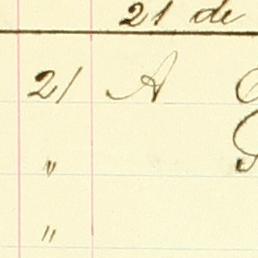 21 de
21 A
"
"